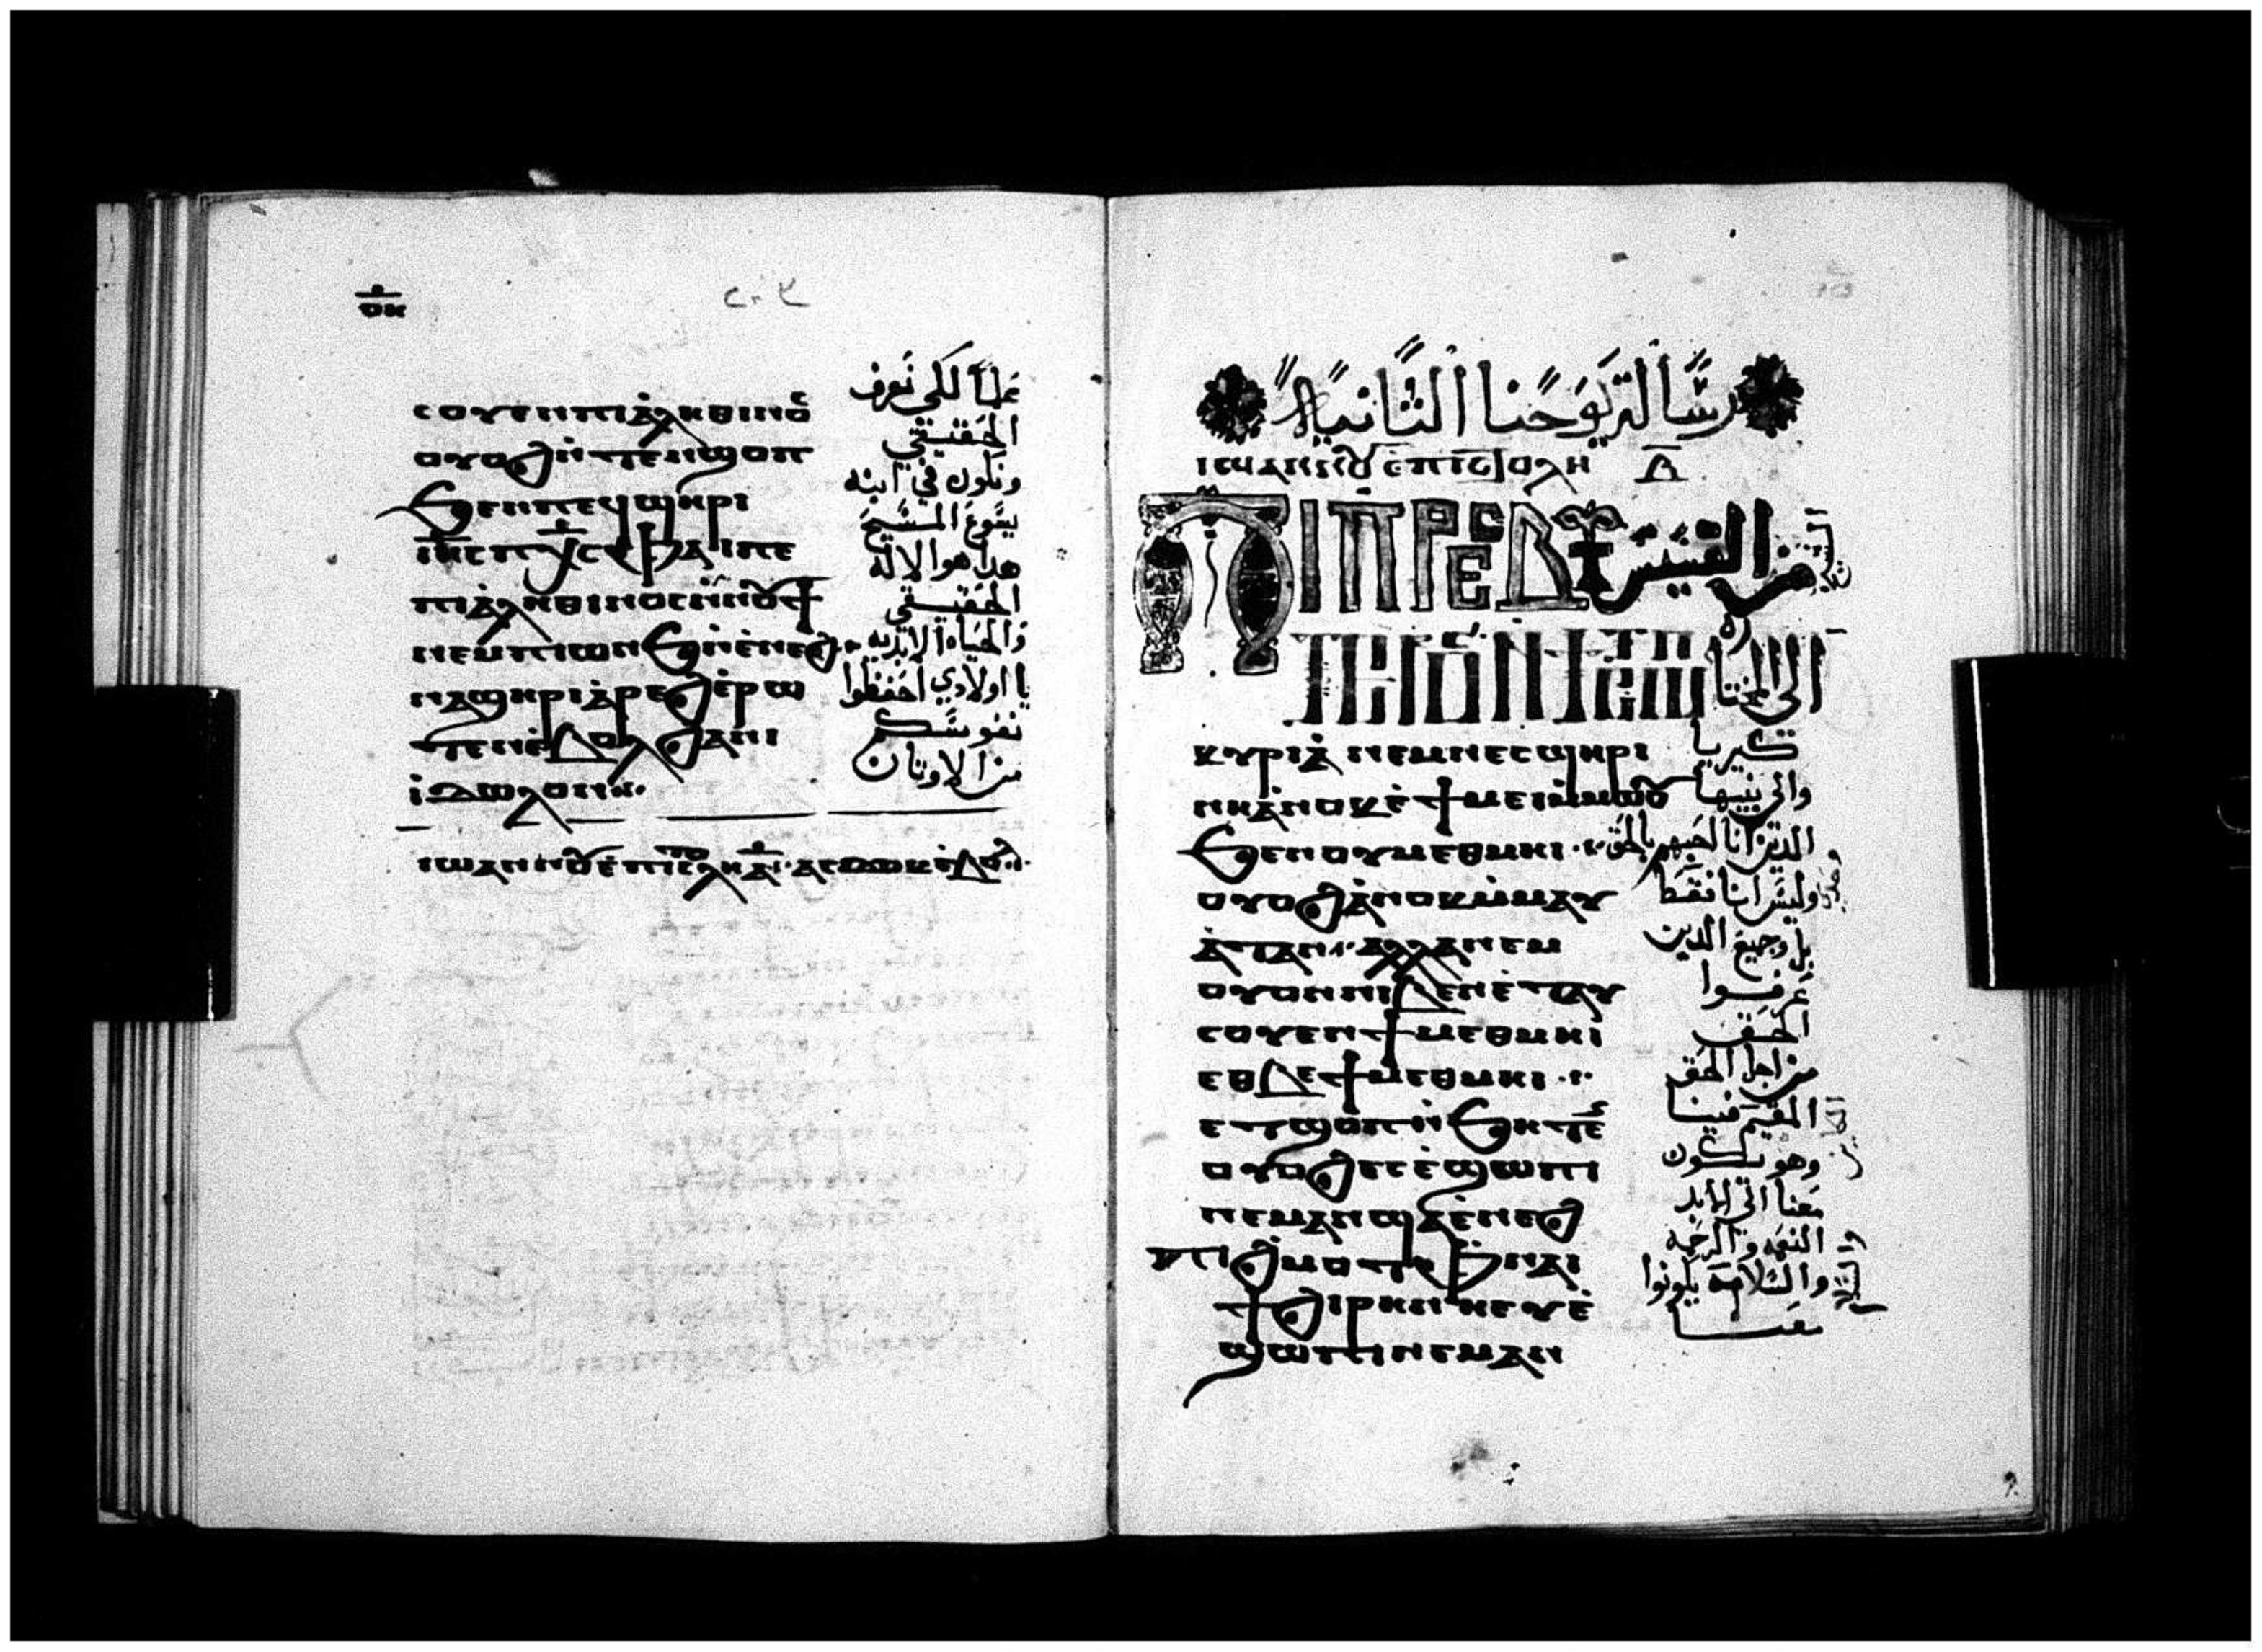 ⲥⲟⲩⲉⲛ ⲡⲓⲁⲗⲏⲑⲓⲛⲟⲥ
ⲟⲩⲟϩ ⲛ̀ⲧⲉⲛϣⲟⲡ
ϧⲉⲛ ⲡⲉϥϣⲏⲣⲓ
ⲓⲏⲥ ⲡⲭⲥ ⲫⲁⲓ ⲡⲉ
ⲡⲓⲁⲗⲏⲑⲓⲛⲟⲥ ⲛ̀ⲛⲟⲩϯ
ⲛⲉⲙ ⲡⲓⲱⲛϧ ⲛ̀ⲉⲛⲉϩ
ⲛⲁϣⲏⲣⲓ ⲁ̀ⲣⲉϩ ⲉ̀ⲣⲱ
ⲧⲉⲛ ⲉ̀ⲃⲟⲗ ϩⲁ ⲛⲓ
ⲓ̀ⲇⲱⲗⲟⲛ
علماً لكي نعرف
الحقيقي
ونكون في ابنه
يسوع المسيح
هذا هو الاله
الحقيقي
والحياه الابديه
يا اولادي احفظوا
نفوسكم
من الاوثان
رسالة يوحنا الثانية
ⲓⲱⲁⲛⲛⲟⲩ ⲉ̀ⲡⲓⲥⲧⲟⲗⲏ ⲃ̅
ⲡⲓⲡⲣⲉⲥⲃⲩ
من القسيس
ⲧⲉⲣⲟⲥ ⲛ̀ϯⲥⲱⲧⲡ
الى المختاره
ⲕⲩⲣⲓⲁ̀ ⲛⲉⲙ ⲛⲉⲥϣⲏⲣⲓ
ⲛⲏ ⲁ̀ⲛⲟⲕ ⲉ̀ϯⲙⲉⲓ ⲙ̀ⲙⲱⲟⲩ
ϧⲉⲛ ⲟⲩⲙⲉⲑⲙⲏⲓ
ⲟⲩⲟϩ ⲁ̀ⲛⲟⲕ ⲙ̀ⲙⲁⲩ
ⲁ̀ⲧ ⲁⲛ ⲁⲗⲗⲁ ⲛⲉⲙ
ⲟⲩⲟⲛ ⲛⲓⲃⲉⲛ ⲉ̀ⲧⲁⲩ
ⲥⲟⲩⲉⲛ ϯⲙⲉⲑⲙⲏⲓ
ⲉⲑⲃⲉ ϯⲙⲉⲑⲙⲏⲓ
ⲉⲧϣⲟⲡ ⲛ̀ϧⲏⲧⲉⲛ
ⲟⲩⲟϩ ⲉⲥⲉ̀ϣⲱⲡⲓ
ⲛⲉⲙⲁⲛ ϣⲁ ⲉ̀ⲛⲉϩ
ⲡⲓϩⲙⲟⲧ ⲫⲛⲁⲓ
ϯϩⲓⲣⲏⲛⲏ ⲉⲩⲉ̀
ϣⲱⲡⲓ ⲛⲉⲙⲁⲛ
كيريا
والى بنيها
الذين انا احبهم بالحق
وليس انا فقط
بل وجميع الذين
عرفوا
الحق
من اجل الحق
المقيم فينا
وهو يكون
معنا الى الابد
النعمه والرحمه
والسلامة يكونوا
معنا